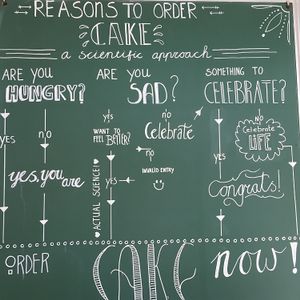 REASONS TO ORDER
CAKE
a scientific approach
ARE YOU
HUNGRY?
yes
no
yes, you are
ARE YOU
SAD?
yes
WANT TO
FEEL BETTER?
no
Celebrate
yes
no
INVALID ENTRY
ACTUAL SCIENCE!
SOMETHING TO
CELEBRATE?
yes
NO
Celebrate
LIFE
Congrats!
ORDER
CAKE
now!